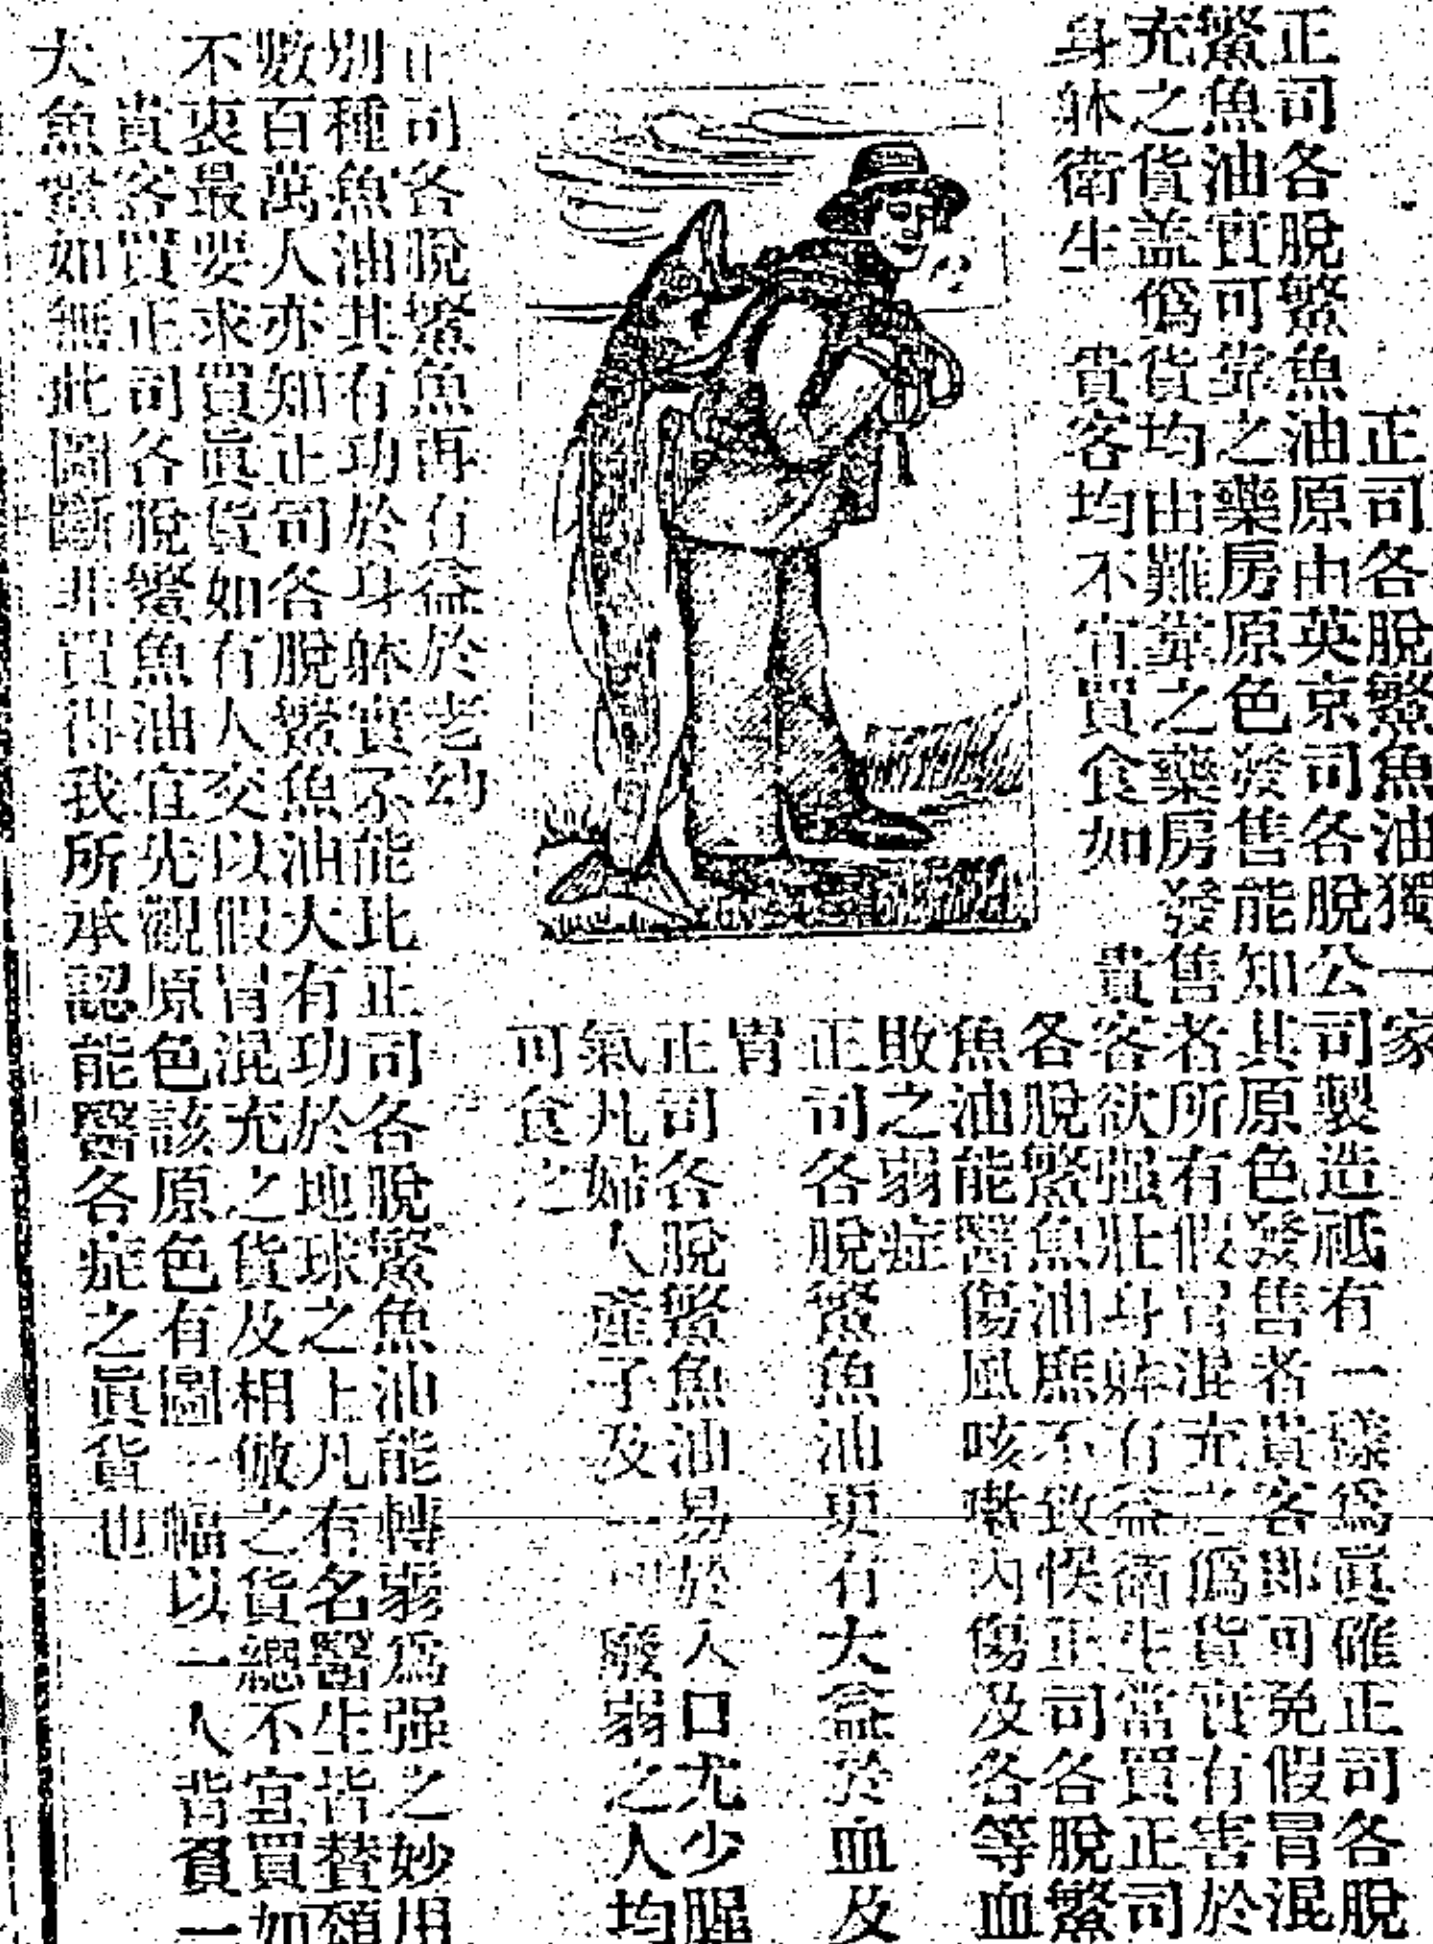 正司各脫鰵魚油獨一家
正司各脫鰵魚油原由英京司各脫公司製造祗有一樣爲眞確正司各脫
鰵魚油實可靠之藥房原色發售能知其原色發售者貴客卽可免假冒混
充之貨盖僞貨均由難靠之藥房發售者所有假冒混充之僞貨實有害於
身躰衛生 貴客均不宜買食如 貴客欲强壯身躰有益衛生當買正司
各脫鰵魚油庶不致悞正司各脫鰵
魚油能醫傷風咳嗽內傷及各等血
敗之弱症
正司各脫鰵魚油更有大益於血及
胃
正司各脫鰵魚油易於入口尤少腥
氣凡婦人產子及一切廢弱之人均
可食之
正司各脫鰵魚再有益於老幼
別種魚油其有功於身躰實不能比正司各脫鰵魚油能轉弱爲强之妙用
數百萬人亦知正司各脫鰵魚油大有功於地球之上凡有名醫生皆賛頌
不衷最要求買眞貨如有人交以假冒混充之貨及相倣之貨總不宜買如
貴客買正司各脫鰵魚油宜先觀原色該原色有圖一幅以一人背負一
大魚鰵如無此圖斷非買得我所承認能醫各症之眞貨也